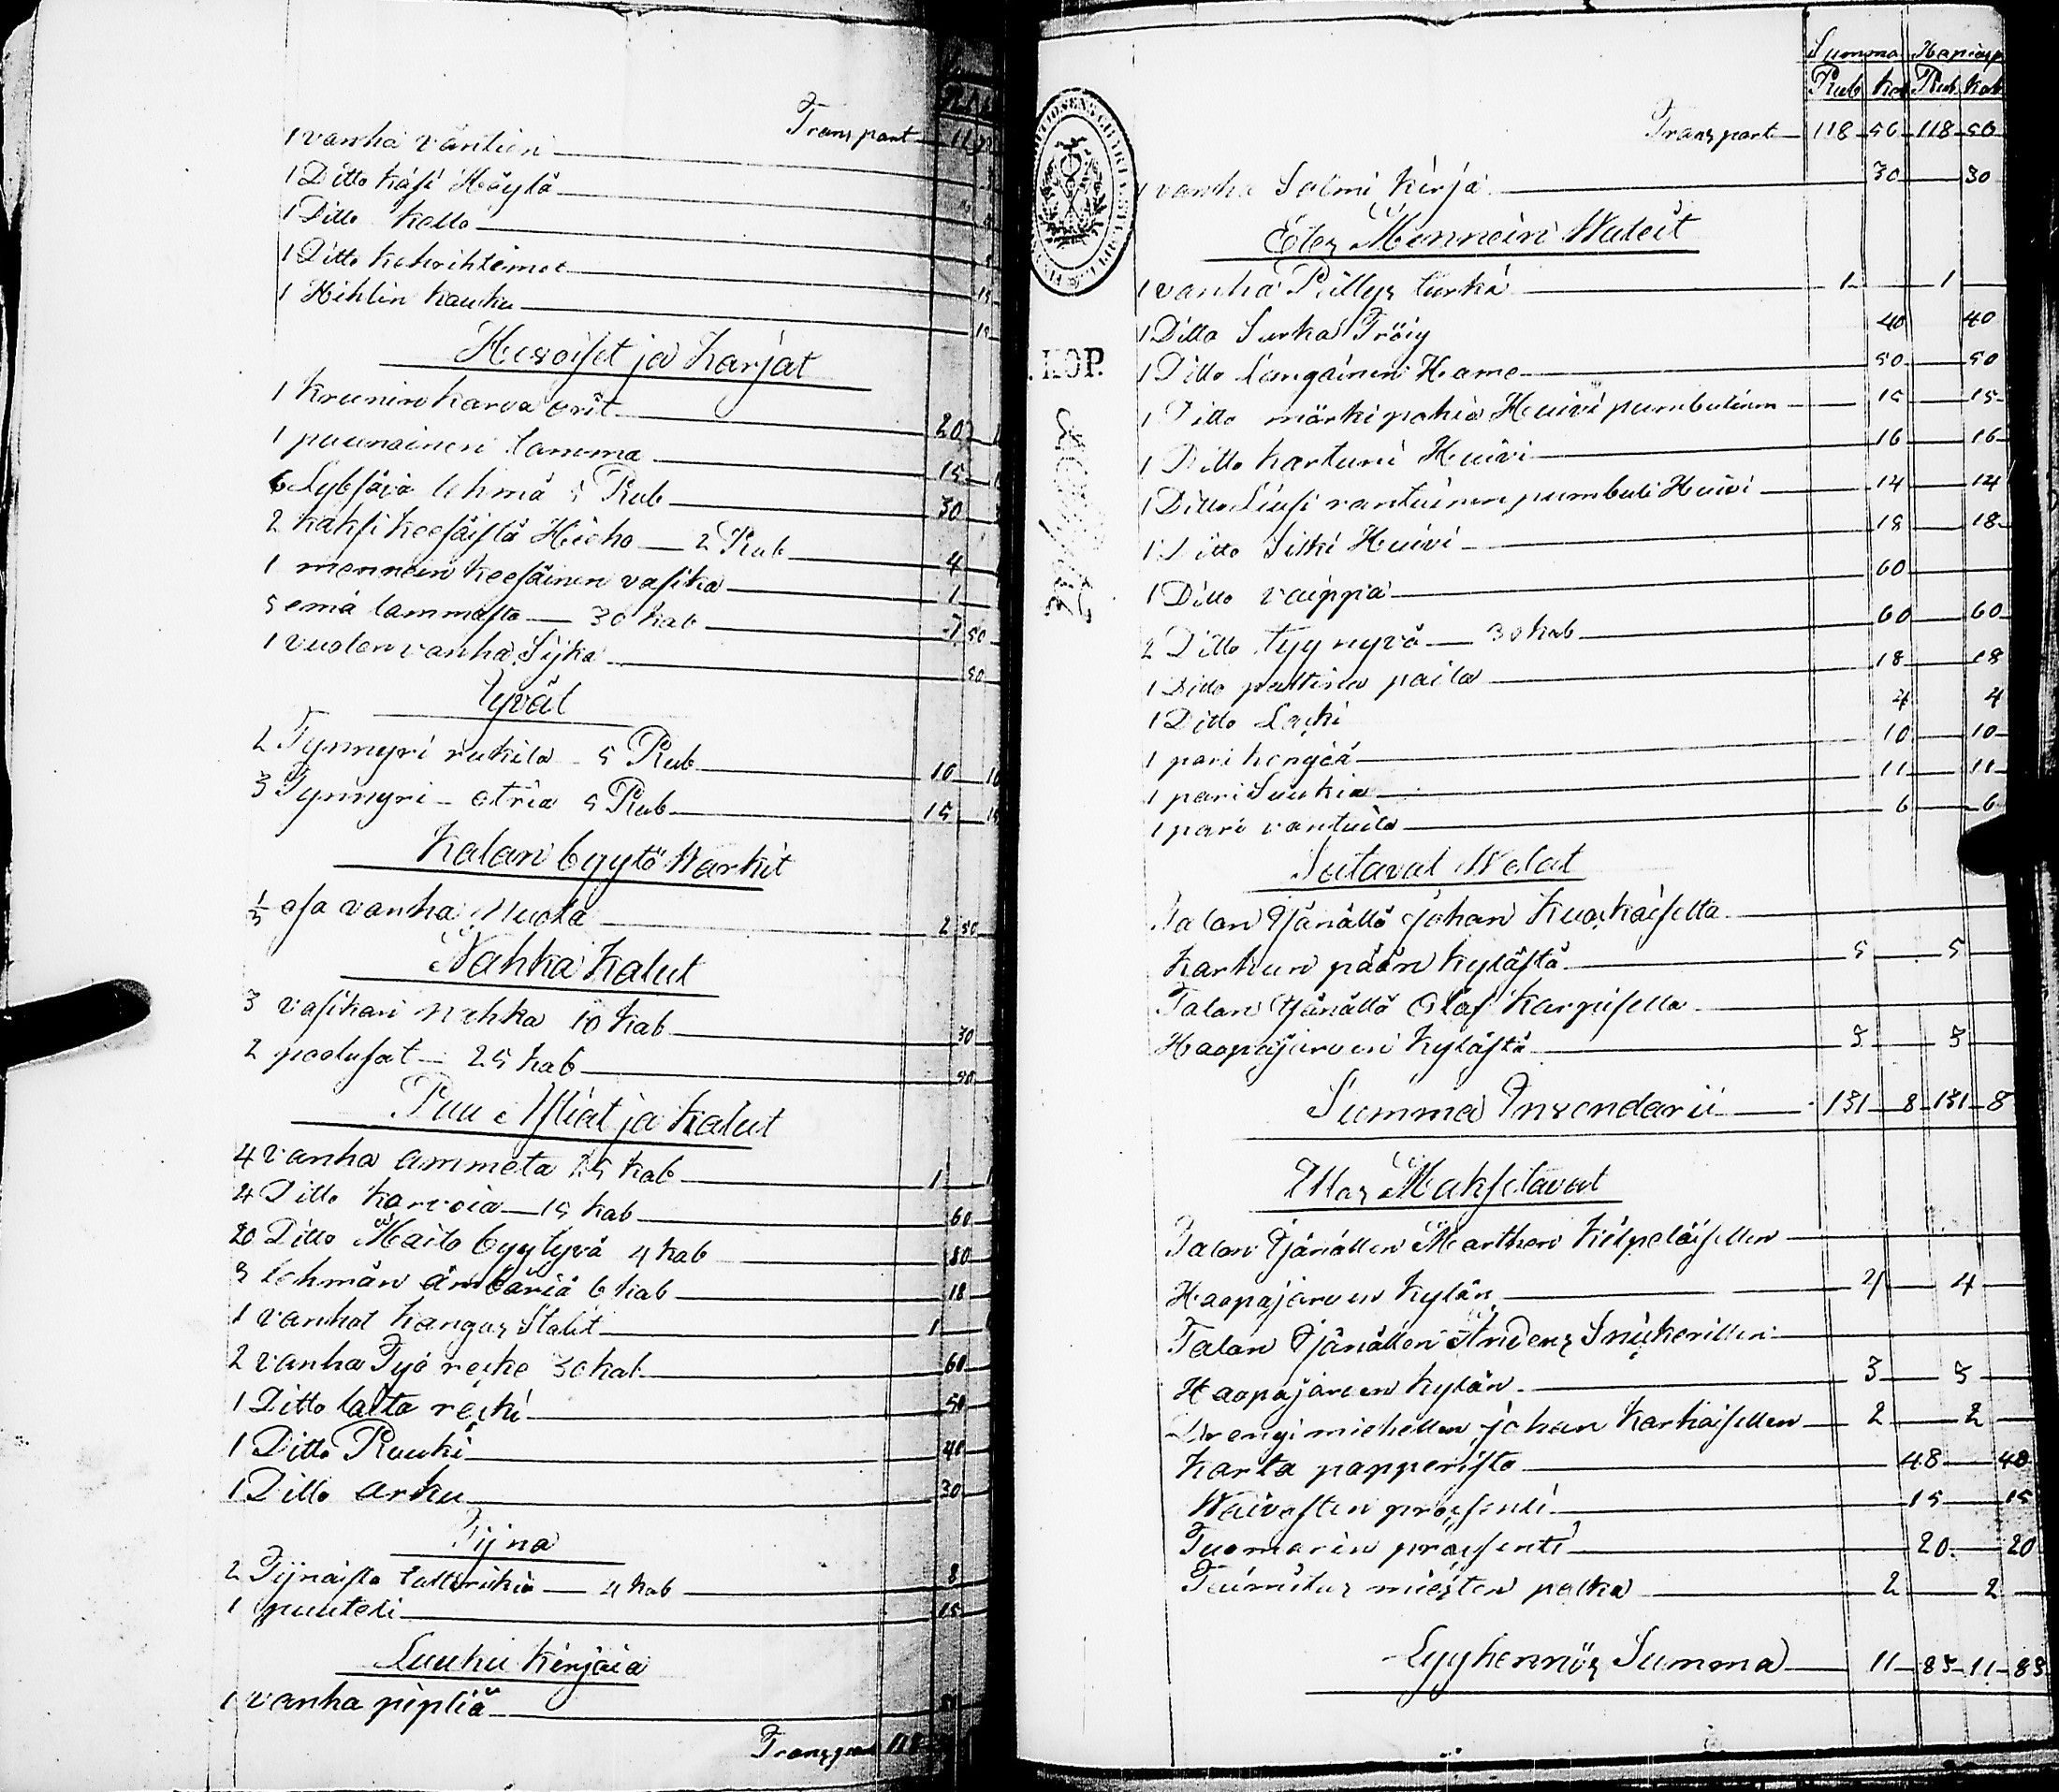 Transport
1 vanha väntien
1 Ditto käsi Höylä
1 Ditto kello
1 Ditto kehrihtimet
1 Hihlin kauku
Hevoiset ja Karjat
1 Krunin karva orit 20
1 puunainen tamma 15
6 Lybsävä lehmä 5 Rub 30
2 kaksi keesäistä Hieho 2 Rub 4
1 mennein keesäinen vasika 1
5 emä lammasta 30 kab 1 50
1 vuoden vanha Sijka 50
Jyvät
2 Tynnyri rukita 5 Rub 10
3 Tynnyri otria 5 Rub 15
Kalan byytö Warkit
1/3 osa vanha Nuota 2 50
Nahka Kalut
3 vasikan nahka 10 kab 30
2 poolusat 25 kab 50
Puu Astiat ja Kalut
4 vanha ammeta 25 kab 1
4 Ditto korvoia 15 kab 60
20 Ditto Maito byytyvä 4 kab 80
3 lehmän ämbäriä 6 kab 18
1 vanhat Kangas Stolit 1
2 vanha Työ reeke 30 kab 60
1 Ditto laita reeki 50
1 Ditto Ruuki 40
1 Ditto arku 30
Tijna
2 Tijnaista tallirikia 4 kab 8
1 puuteli 15
Luuku Kirjaia
1 vanha pipliä
Transport 118
Summa
Rub Kab Rub Kab
Transport 118 50 118 50
1 vanha Salmi Kirja 30 30
Edes Mennein Wateit
1 vanha Pillys turki 1 1
1 Ditto Sarka Tröig 40 40
1 Ditto Langainen Hame 50 50
1 Ditto märki pohia Huivi pumbulinen 15 15
1 Ditto kartuni Huivi 16 16
1 Ditto Liusi rantuinen pumbuli Huivi 14 14
1 Ditto Silki Huivi 18 18
1 Ditto vaippa 60
2 Ditto tyynyvä 30 kab 60 60
1 Ditto palttina paita 18 18
1 Ditto Laki 4 4
1 pari kengiä 10 10
1 pari Suukia 11 11
1 pari vantuita 6 6
Satavat Welat
Talan Isänällä Johan Kuoskaiselta
Karkun pään Kylästä 5 5
Talan Isänällä Olaf Karpiselta
Haapajärven Kylästä 3 3
Summa Invendarii 131 8 131 8
Ulos Maksetavat
Talan Isänällen Marthen Kilpeläisellen
Haapajärven Kylän 4 4
Talan Isänällen Anders Snikerillen
Haapajärven Kylän 3 3
Drengimiehellen Johan Karhaisellen 2 2
Karta papperista 48 48
Waivasten prosenti 15 15
Tuomarin prosenti 20 20
Toimitus miesten palka 2 2
Lyyhennös Summa 11 83 11 83
KOP.